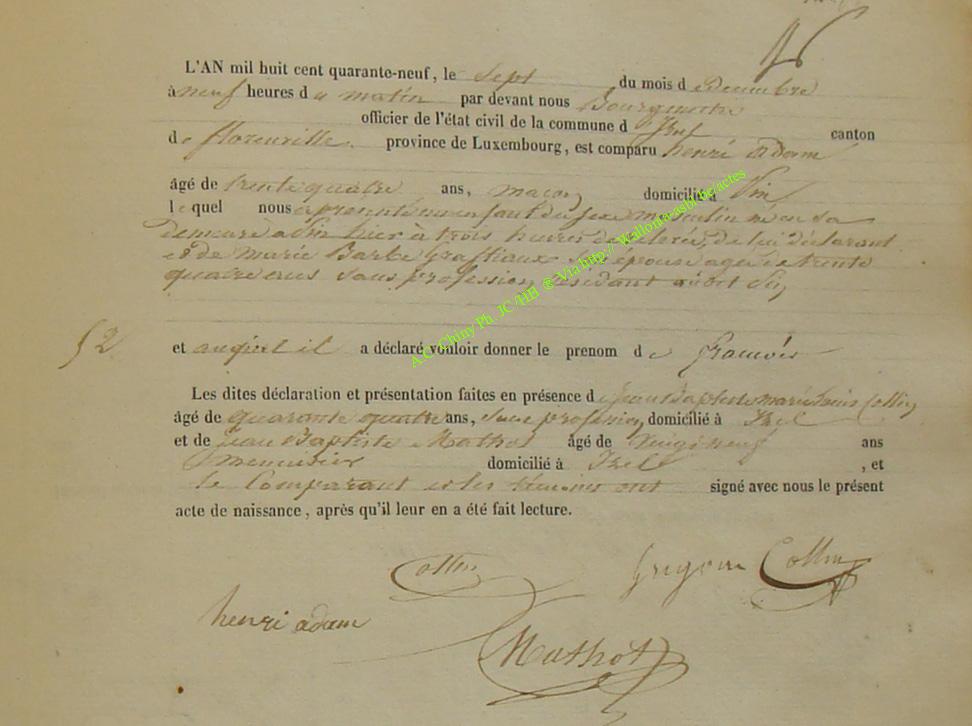 L'AN mil huit cent quarante-neuf, le Sept du mois d Decembre
à neuf heures d u matin par devant nous Bourgmestre
officier de l'état civil de la commune d canton
d e florenville province de Luxembourg, est comparu henri adam
âgé de trente quatre ans, maçon domicilié à Pin
le quel nous a presenté un enfant du sexe masculin né en sa
demeure a Pin hier à trois heures de de lui déclarant
et de Marie Barbe son épouse agée de trente
quatre ans sans profession résidant audit Pin
52
et auquel il a déclaré vouloir donner le prenom d e françois
Les dites déclaration et présentation faites en présence d e Jean Baptiste marie Louis Collin
âgé de quarante quatre ans, sans profession domicilié à Izel
et de Jean Baptiste Mathot âgé de vingt neuf ans
menuisier domicilié à Izel , et
le Comparant et les témoins ont signé avec nous le présent
acte de naissance, après qu'il leur en a été fait lecture.
Collin Collin
henri adam
Mathot
A.G. Chiny Ph. JC /HB ® Via http:// Wallonia-asbl.be/actes